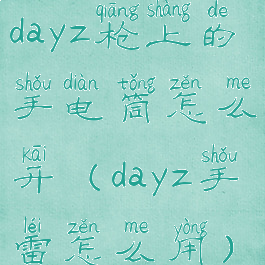 qiāng shàng de
dayz枪上的
shǒu diàn tǒng zěn me
手电筒怎么
kāi shǒu
开（dayz手
léi zěn me yòng
雷怎么用）